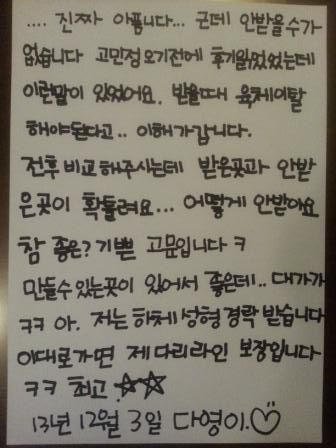 .... 진짜 아픕니다... 근데 안받을수가
없습니다 고민정 오기전에 후기읽었었는데
이런말이 있었어요. 받을때 육체이탈
해야된다고.. 이해가갑니다.
전후 비교해주시는데 받은곳과 안받
은곳이 확들려요... 어떻게 안받아요
참 좋은? 기쁜 고문입니다 ㅋ
만들수있는곳이 있어서 좋은데.. 대가가
ㅋㅋ 아. 저는 하체성형경락 받습니다
이대로가면 제다리라인 보장입니다
ㅋㅋ 최고 ☆☆
13년 12월 3일 다영이.♡